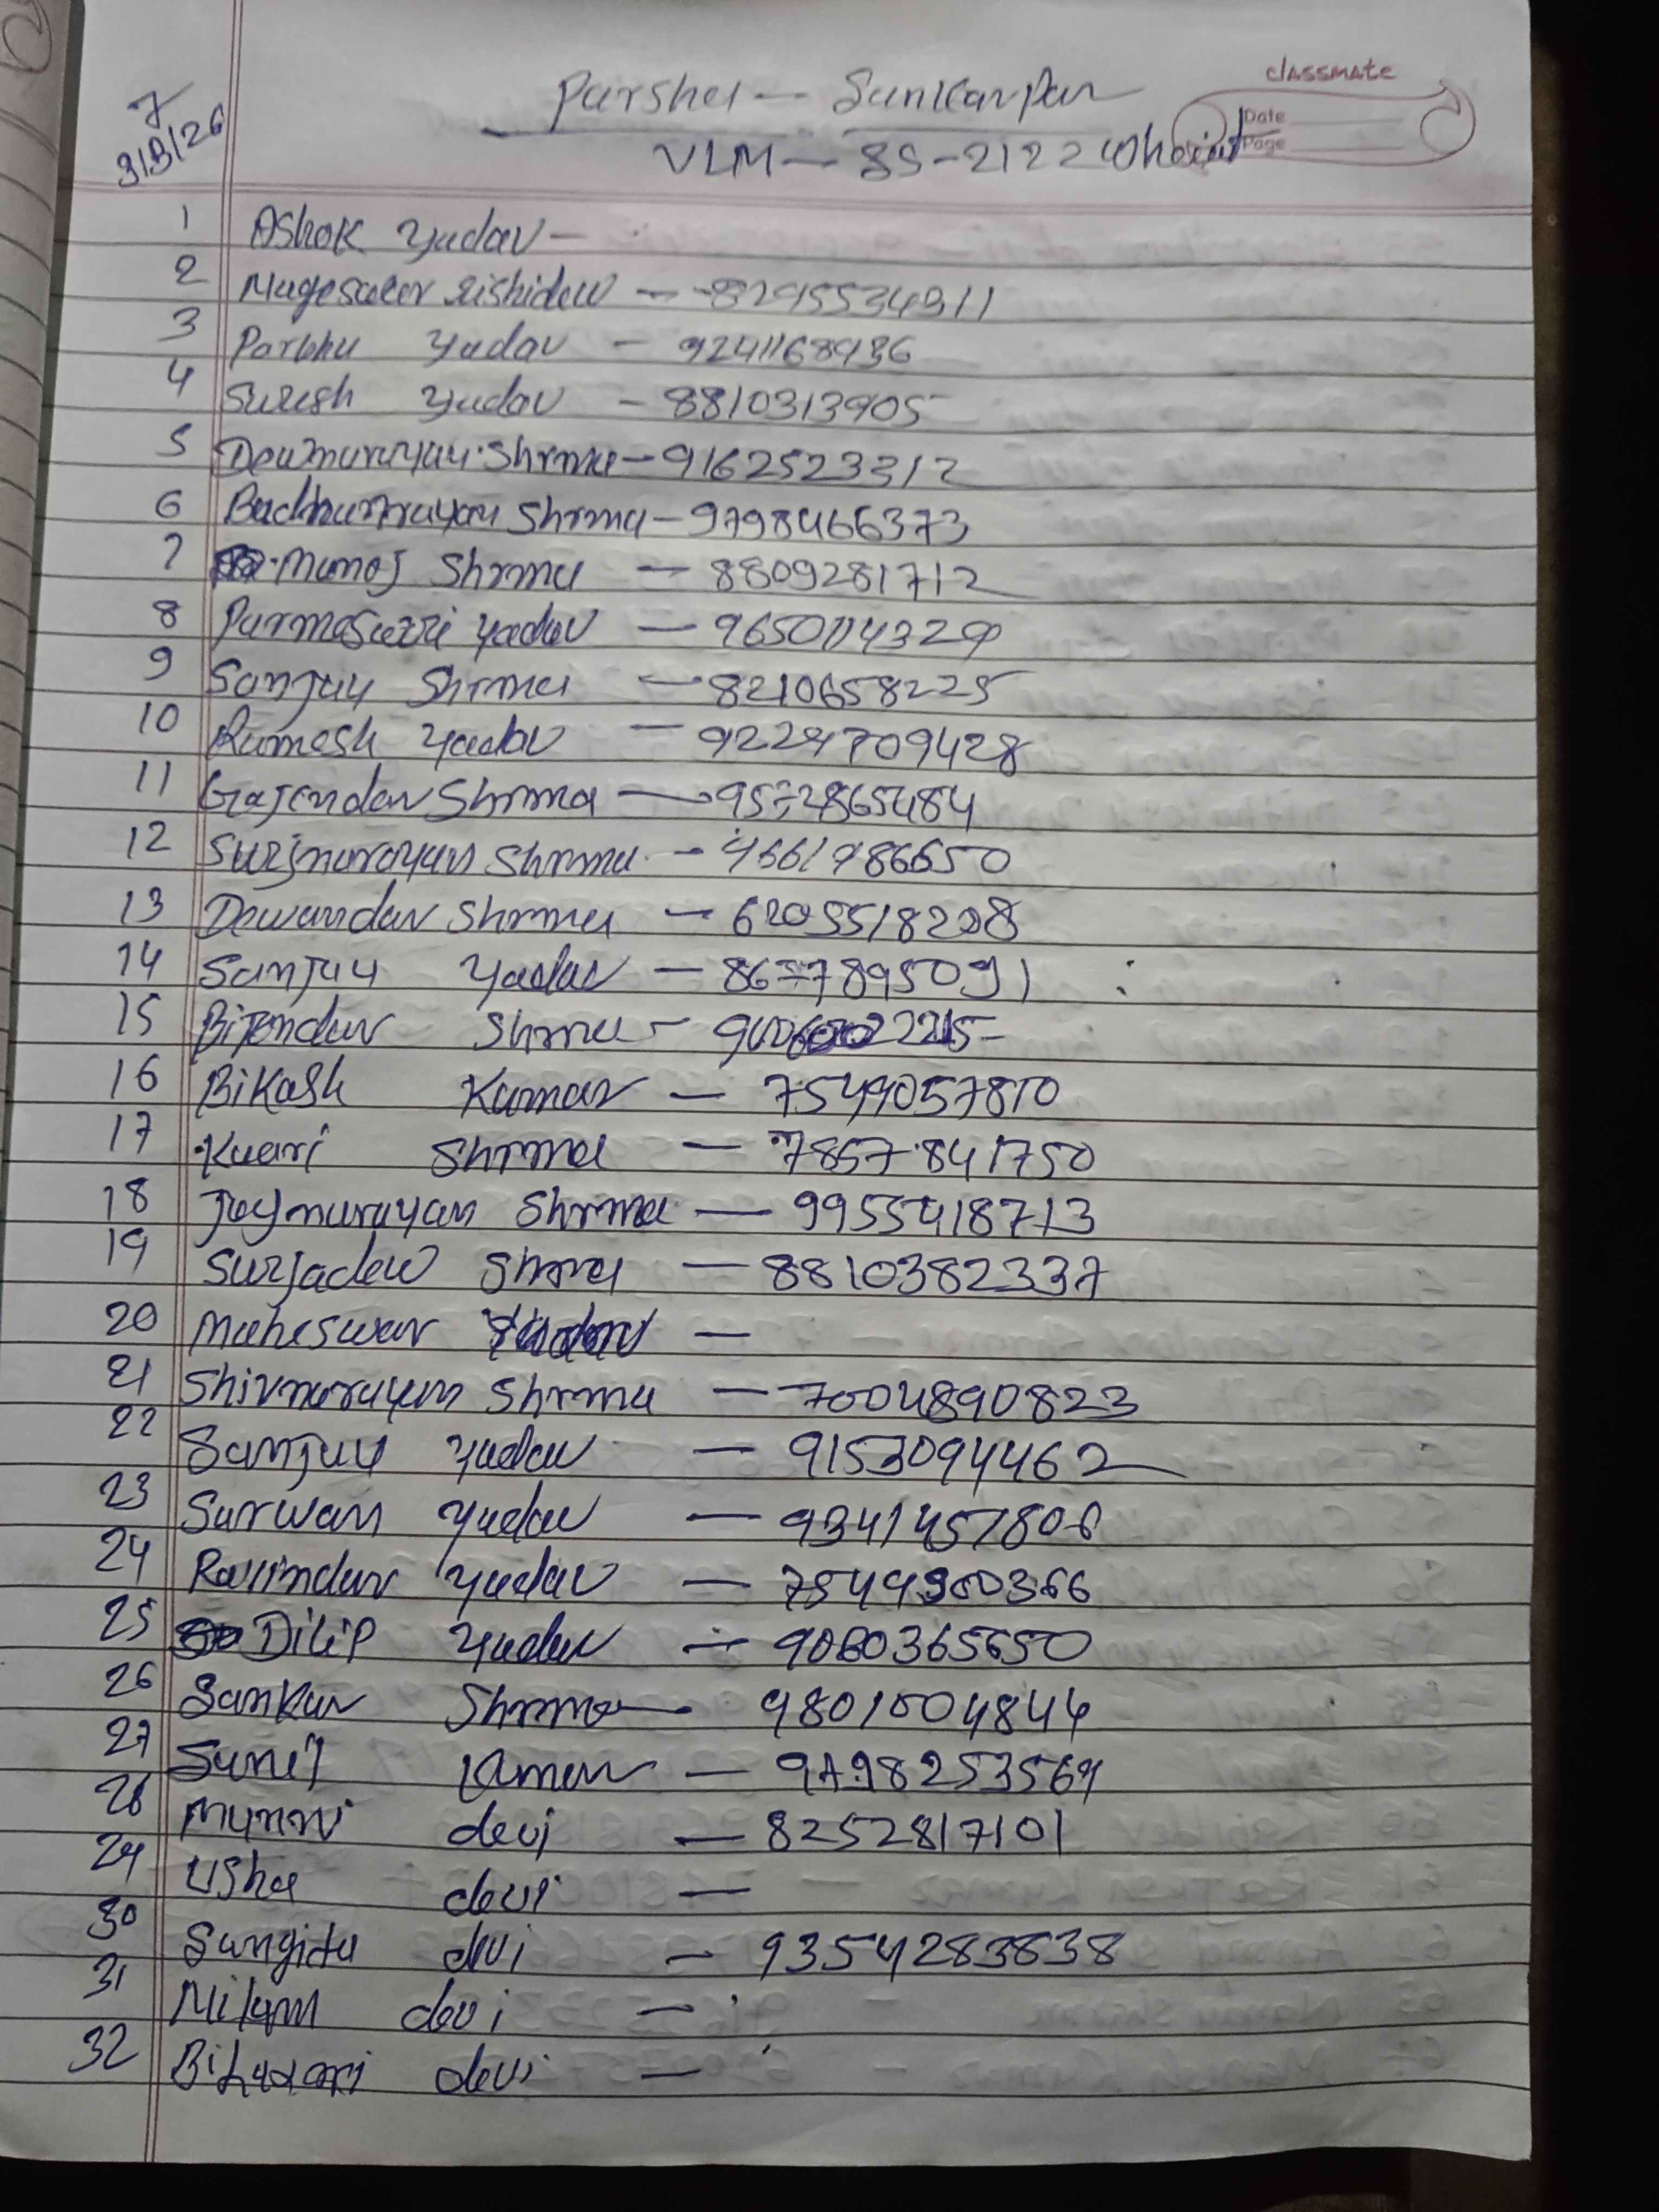 classmate
Date
Page
7
3/3/26
Parshel - Sunkarpur
VLM - 85-2122 Wheat
1 Ashok Yadav -
2 Nageswer Rishidew - 8295534911
3 Parbhu Yadav - 9241168936
4 Suresh Yadav - 8810313905
5 Dewnarayan Shrma - 9162523312
6 Badhunarayan Shrma - 9798466373
7 Manoj Shrma - 8809281712
8 Yadav - 9650114329
9 Sanjay Shrma - 8210658225
10 Ramesh Yadav - 9229709428
11 Gajendar Shrma - 9572865484
12 Surjnarayan Shrma -
13 Dewandar Shrma - 6205518208
14 Sanjay Yadav -
15 Bijendar Shrma -
16 Bikash Kumar - 7549057810
17 Kuari Shrma - 7857841750
18 Jaynarayan Shrma - 9955418713
19 Surjadew Shrma - 8810382337
20 Maheswar -
21 Shivnarayan Shrma - 7004890823
22 Sanjay Yadav - 9153094462
23 Sarwan Yadav - 9341457808
24 Ravindar Yadav - 7549900366
25 Dilip Yadav -
26 Sankar Shrma - 9801004844
27 Sunil Kumar -
28 Munni devi - 8252817101
29 Usha devi -
30 Sangita devi - 9354283838
31 Nilam devi -
32 devi -